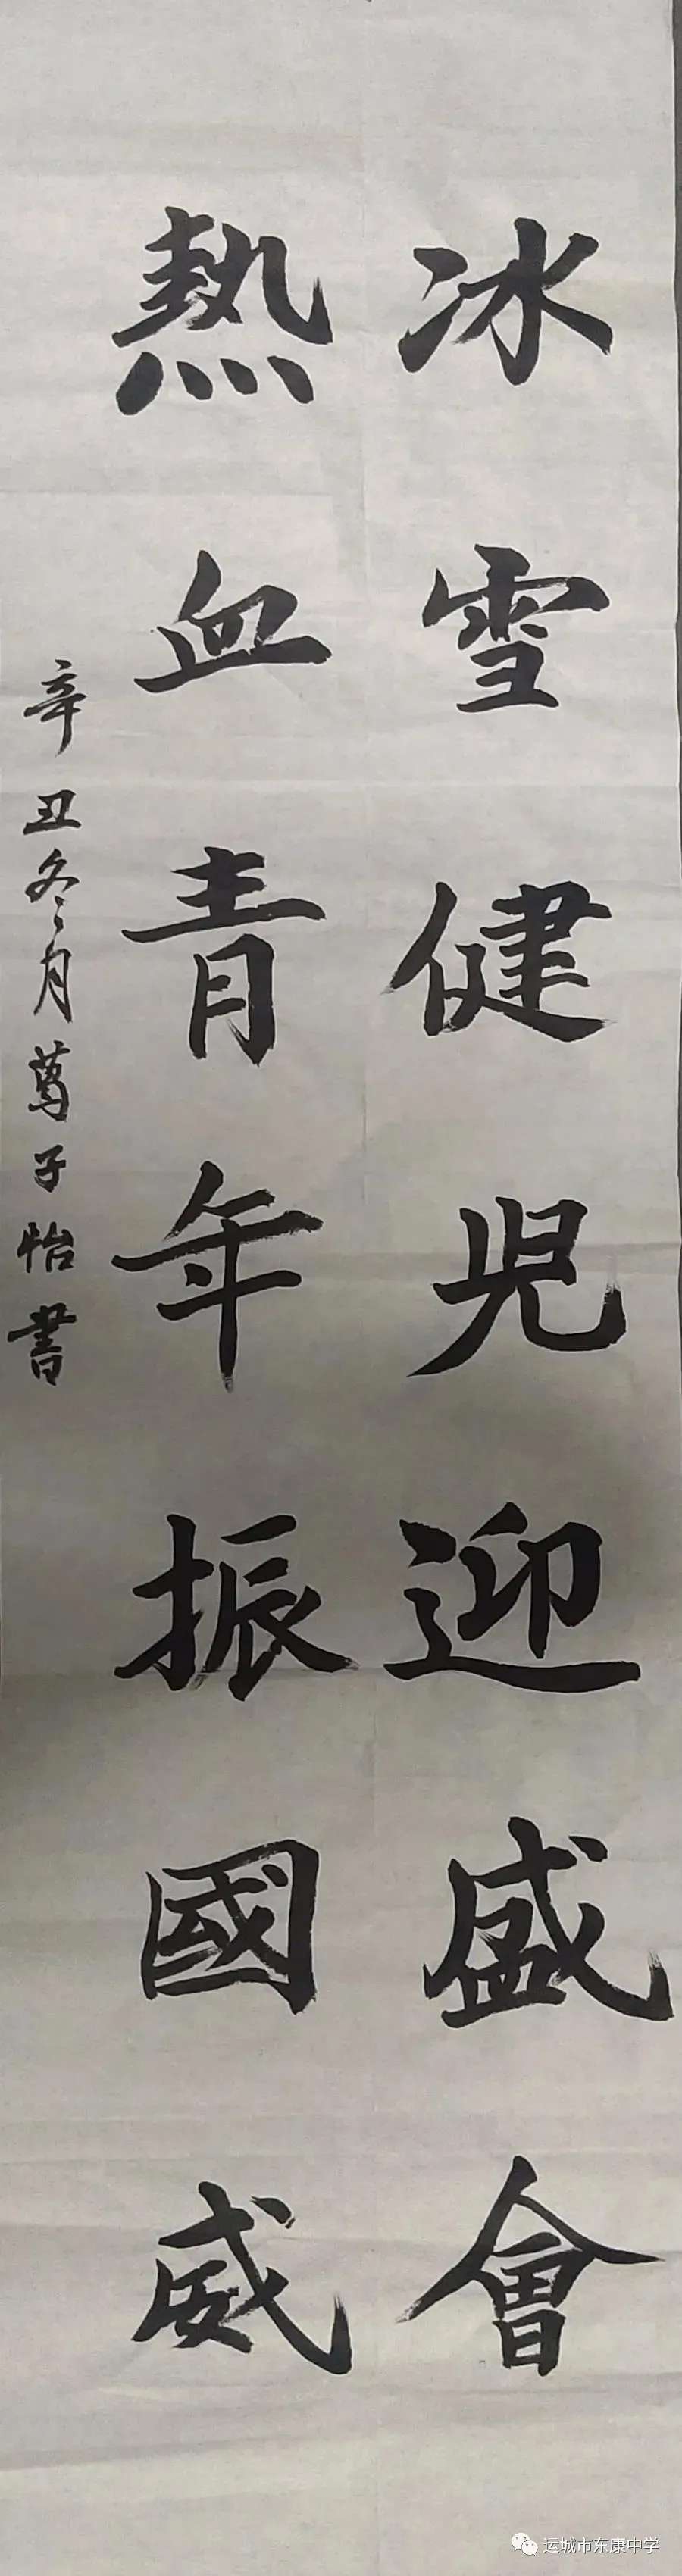 冰雪健児迎盛會
熱血青年振國威
辛丑冬月 子怡書
运城市东康中学